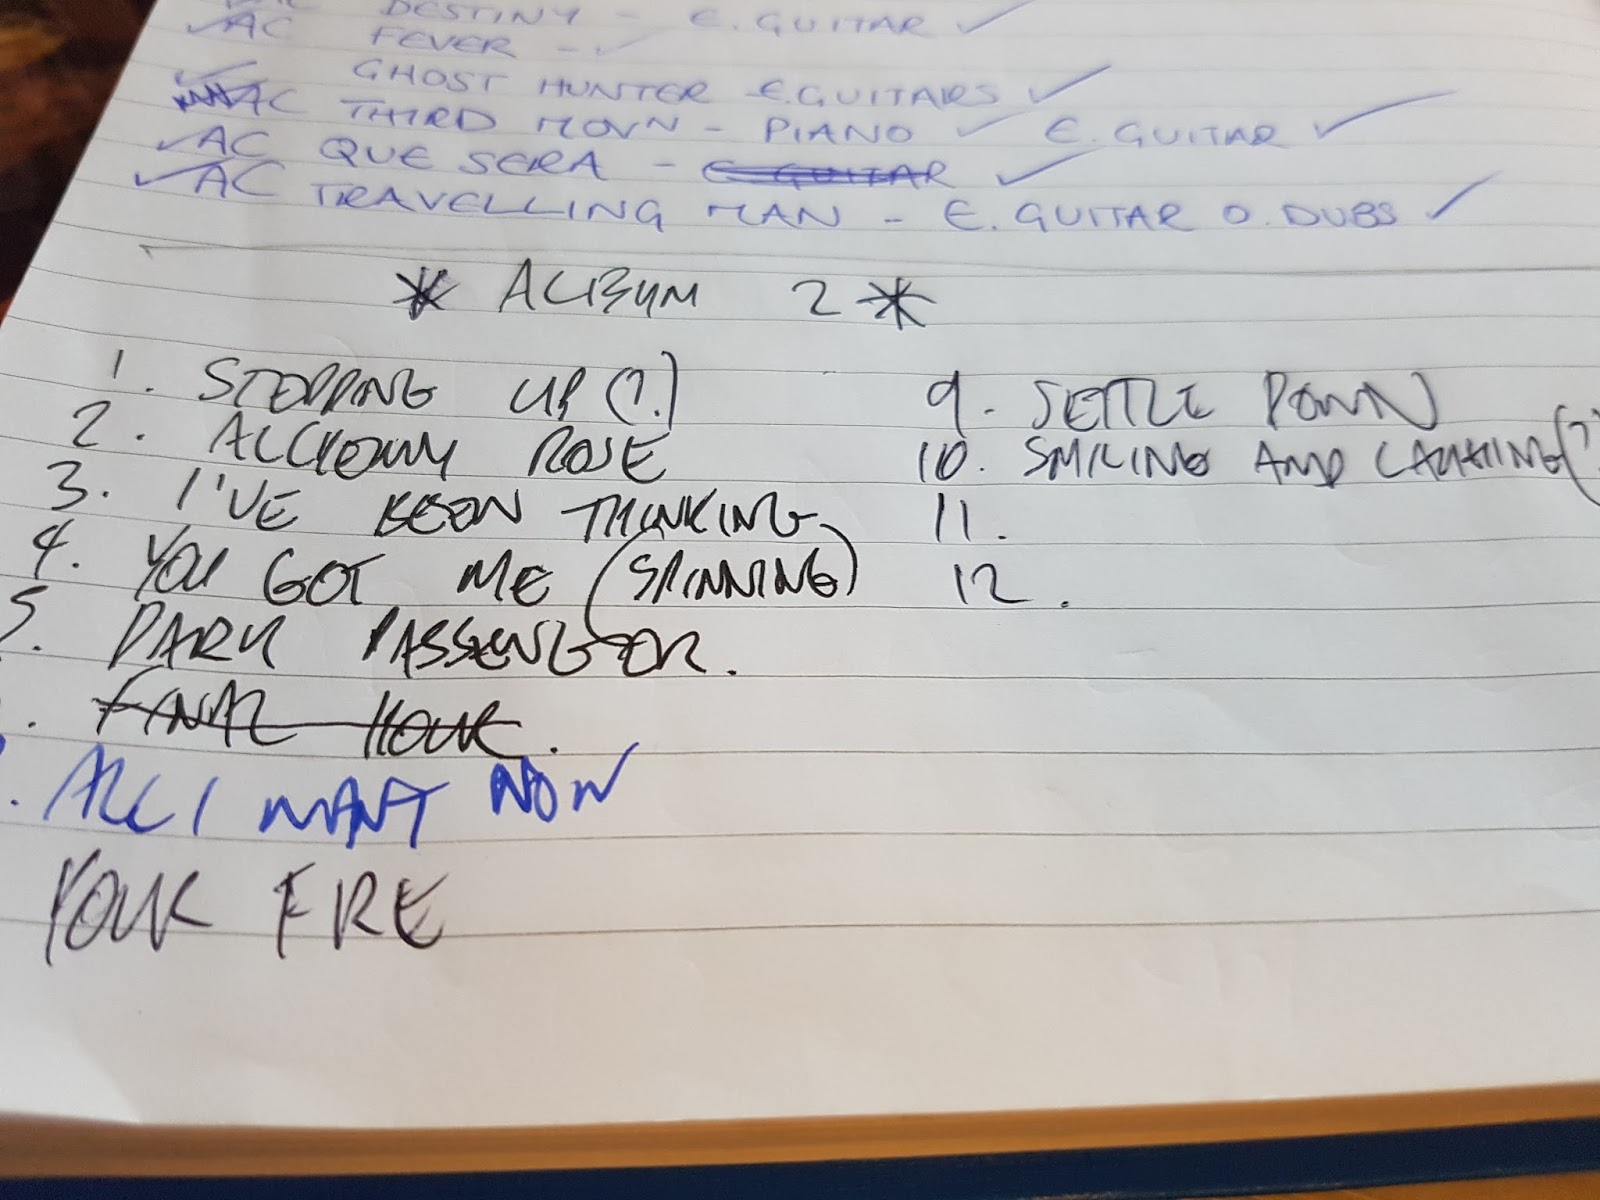 DESTINY - E. GUITAR ✓
✓ AC FEVER - ✓
✓ GHOST HUNTER - E. GUITARS ✓
AC THIRD MOVN - PIANO ✓ E. GUITAR ✓
✓ AC QUE SERA - E GUITAR ✓
✓ AC TRAVELLING MAN - E. GUITAR O. DUBS ✓
* ALBUM 2 *
1. STEPPING UP (?)
2. ALCHEMY ROSE
3. I'VE BEEN THINKING
4. YOU GOT ME (SPINNING)
5. DARK PASSENGER.
. FINAL HOUR.
. ALL I WANT NOW
YOUR FIRE
9. SETTLE DOWN
10. SMILING AND LAUGHING (?
11.
12.